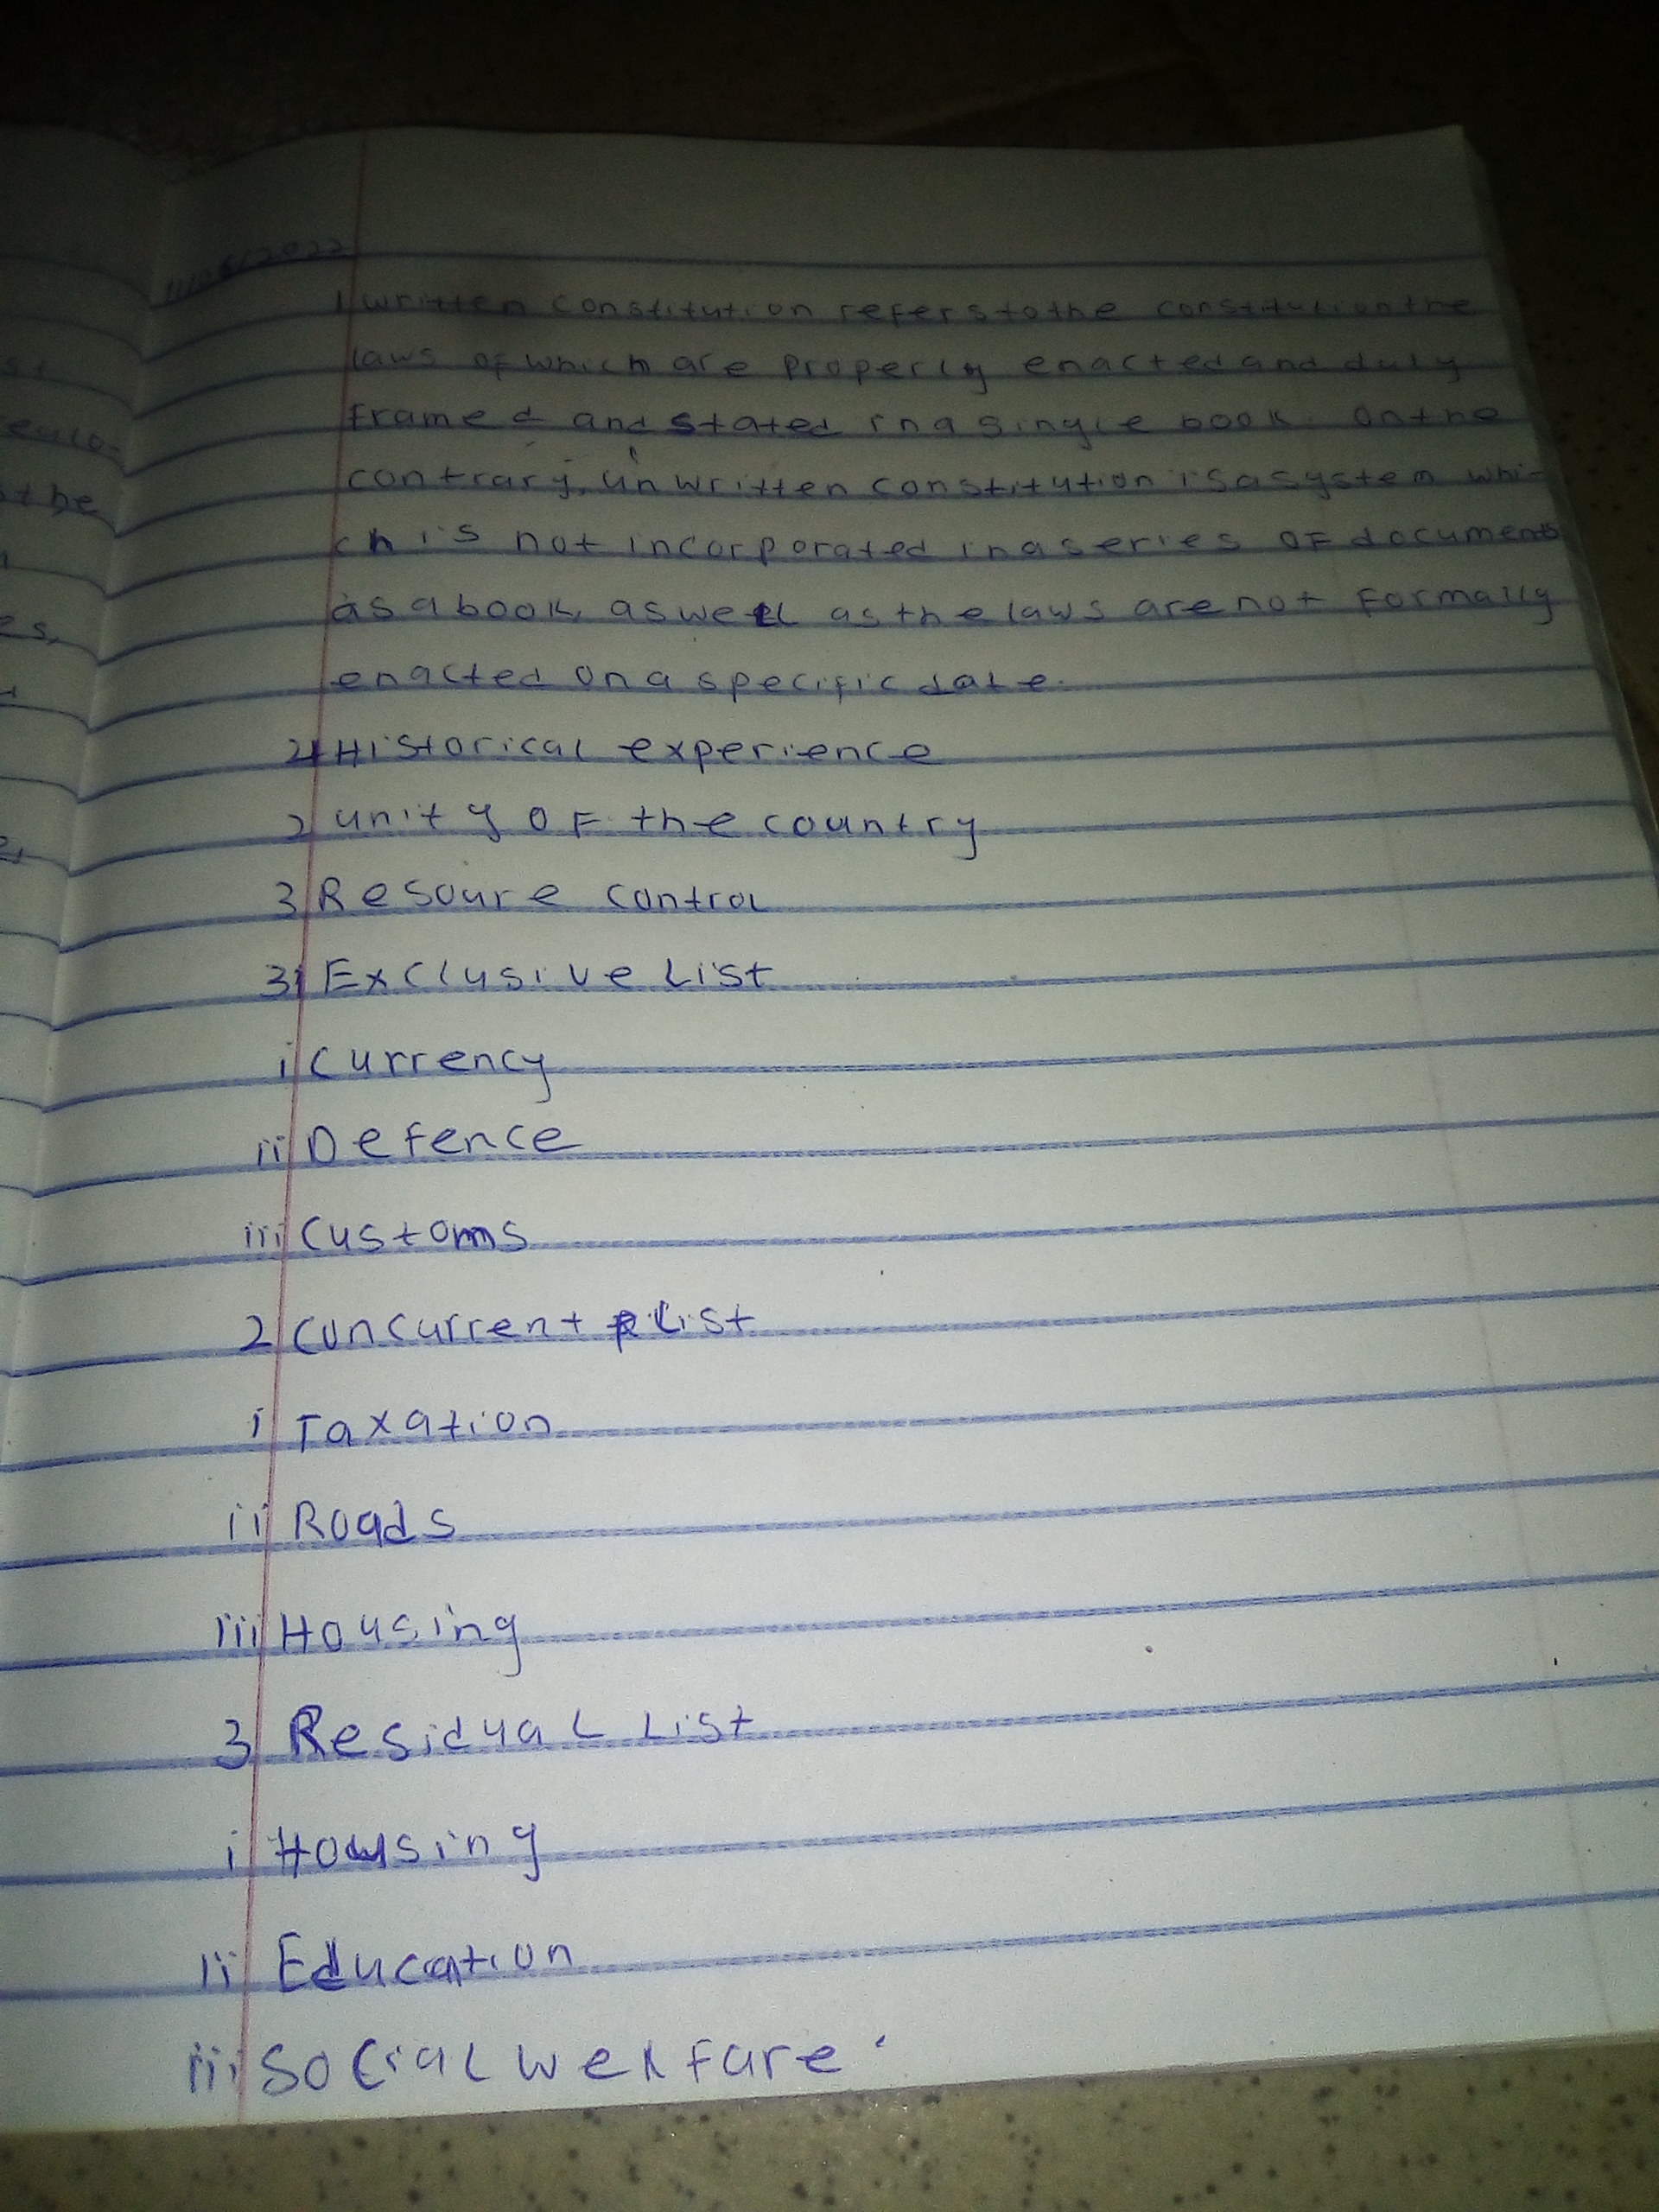 11/06/2022
1 written constitution refers to the constitution the
laws of which are properly enacted and duly
framed and stated in a single book. On the
contrary, unwritten constitution is a system whi-
ch is not incorporated in a series of documents
as a book, as well as the laws are not formally
enacted on a specific date.
21 Historical experience
2 unity of the country
3 Resoure control
31 Exclusive List
i currency
ii Defence
iii Customs
2 Concurrent List
i Taxation
ii Roads
iii Housing
3 Residual List
i Housing
ii Education
iii Social welfare.
the
es,